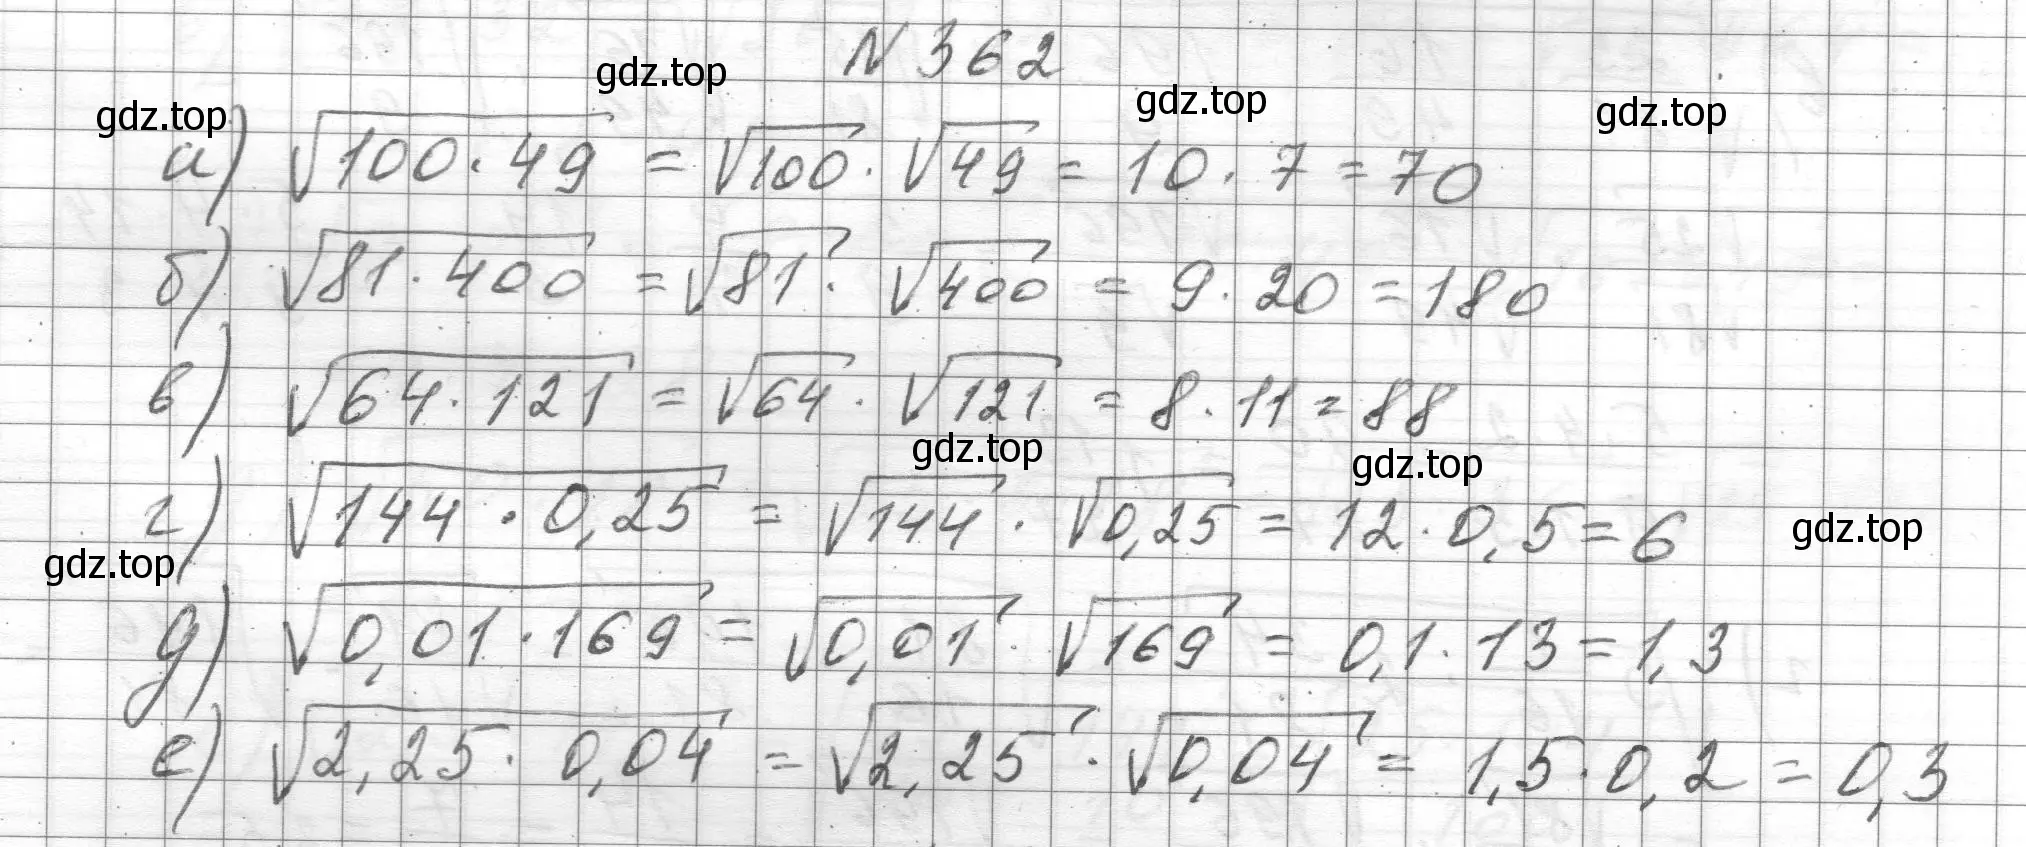 N 362
gdz.top
gdz.top
gdz.top
gdz.top
а) √100·49 = √100 · √49 = 10 · 7 = 70
б) √81·400 = √81 · √400 = 9·20 = 180
в) √64·121 = √64 · √121 = 8·11 = 88
gdz.top
gdz.top
г) √144 · 0,25 = √144 · √0,25 = 12·0,5 = 6
gdz.top
gdz.top
д) √0,01·169 = √0,01 · √169 = 0,1·13 = 1,3
е) √2,25 · 0,04 = √2,25 · √0,04 = 1,5·0,2 = 0,3